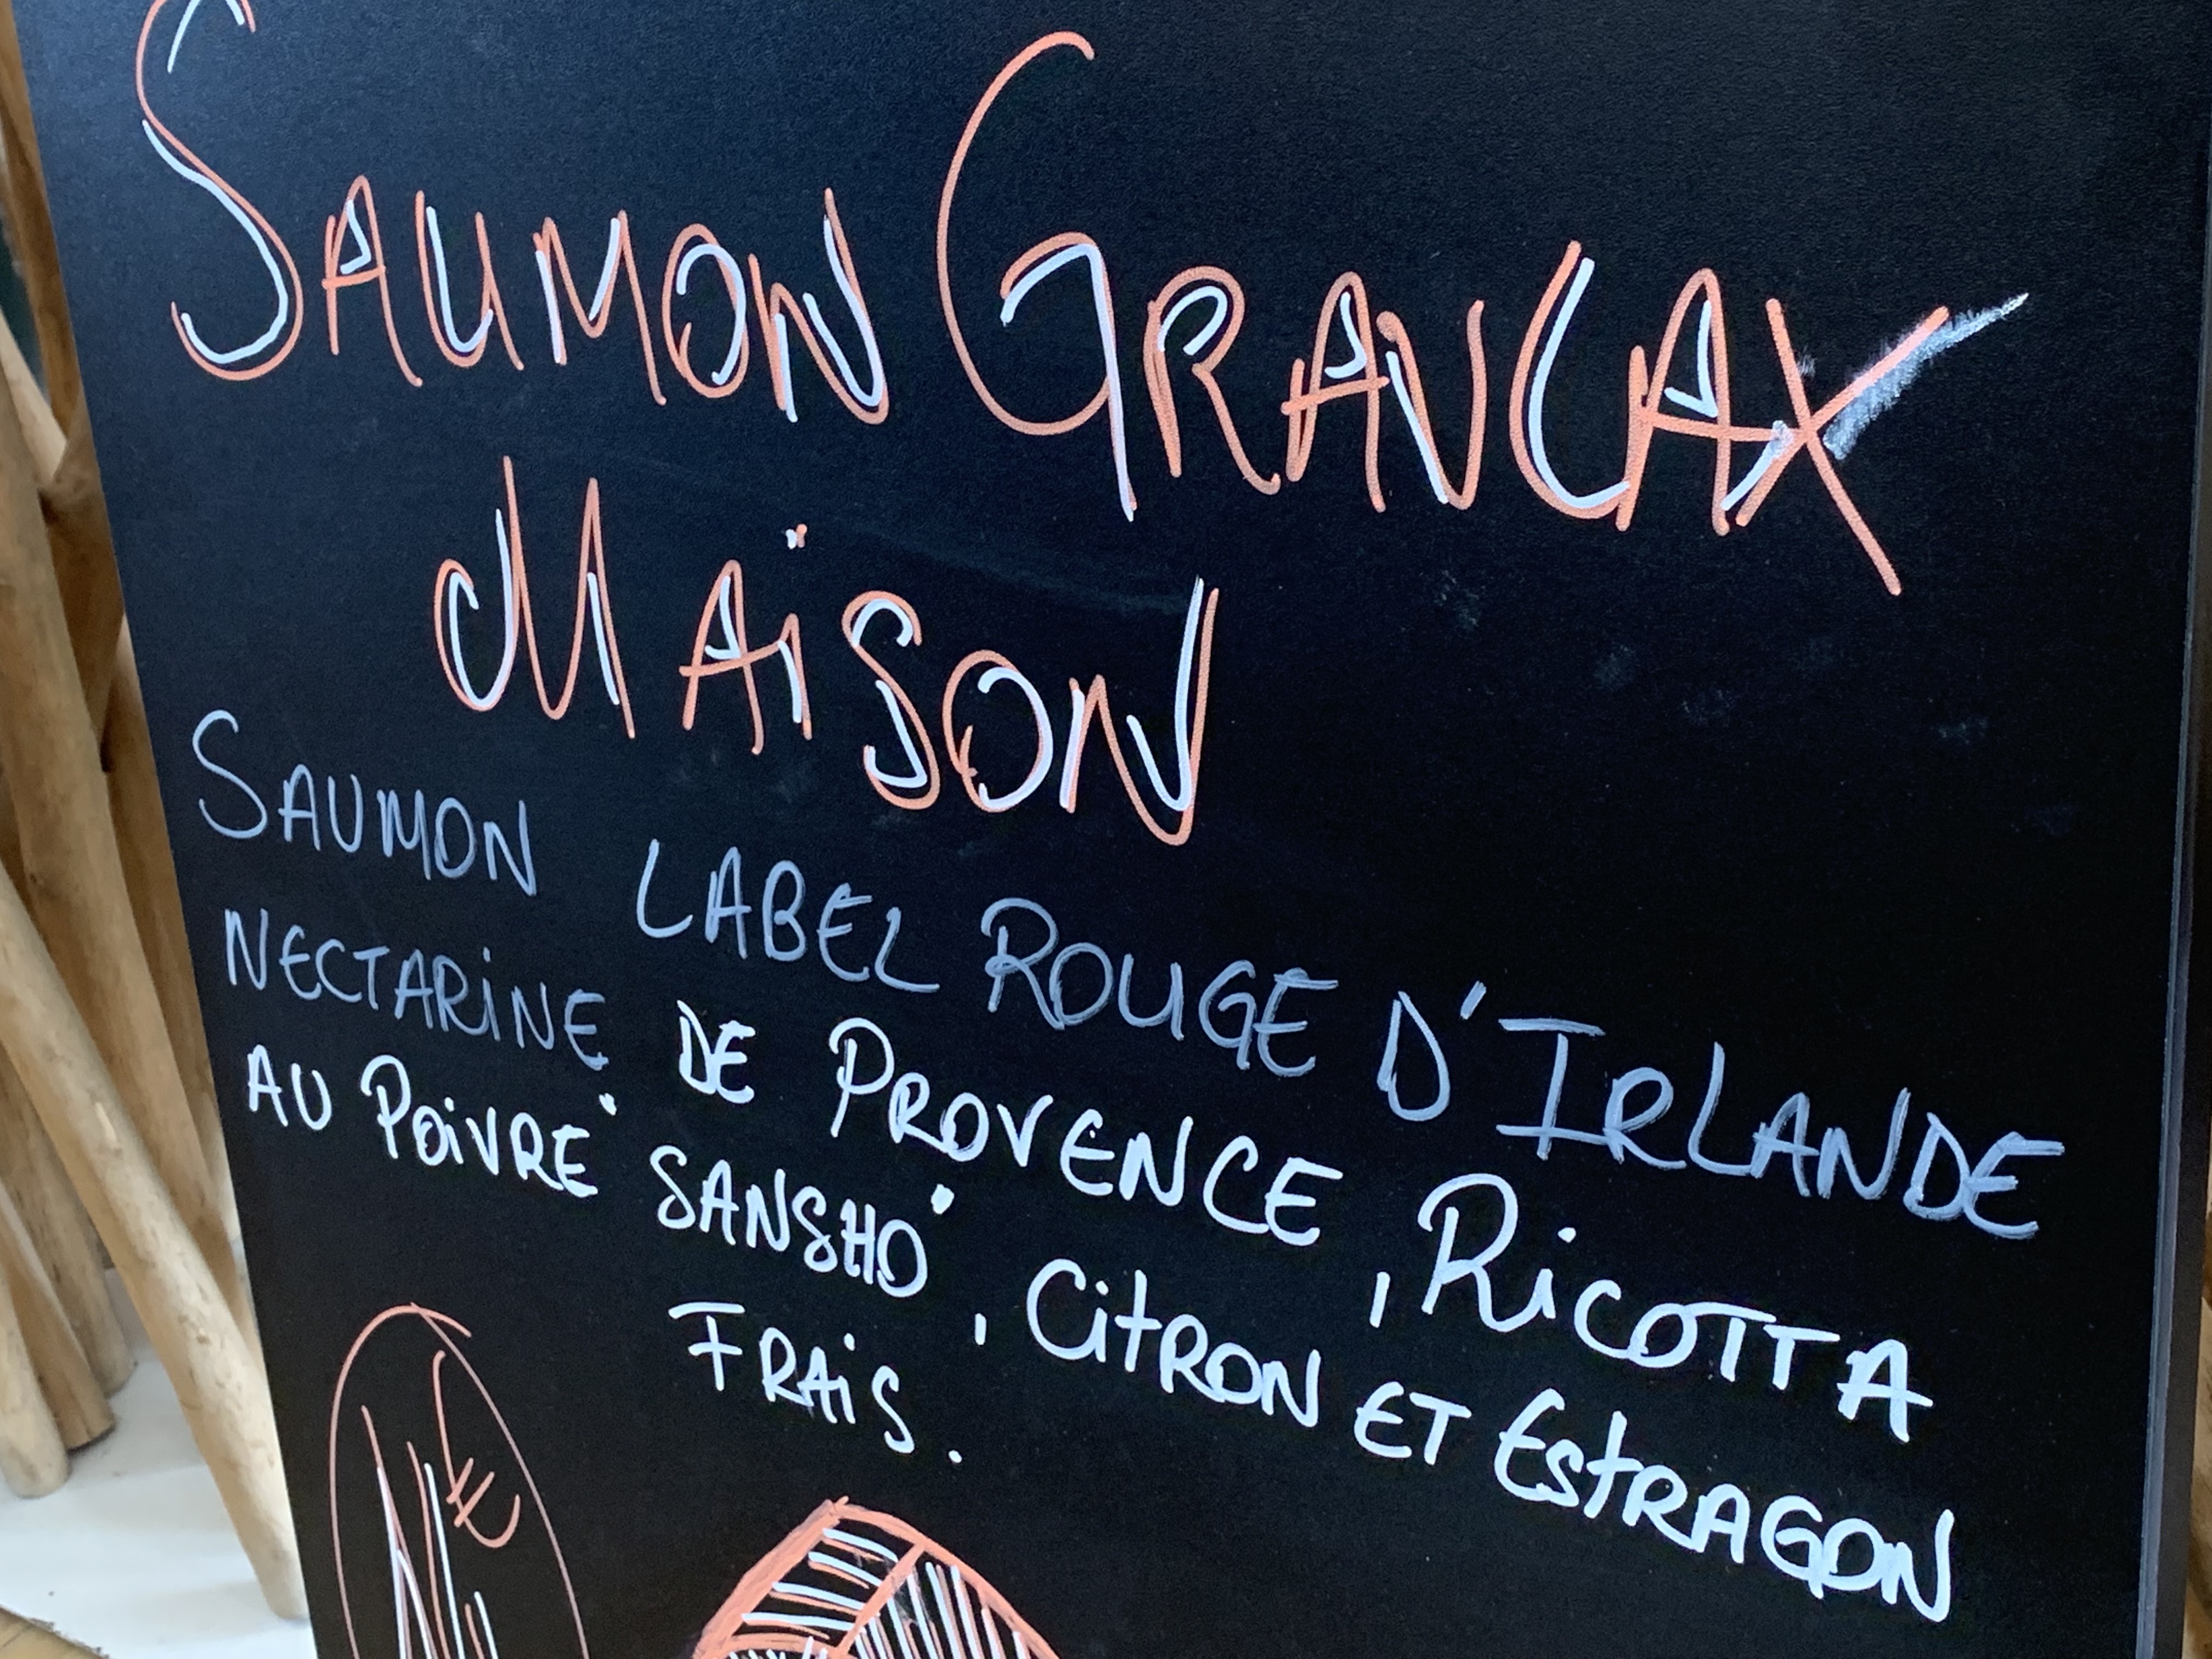 SAUMON GRAVLAX
MAiSON
SAUMON LABEL ROUGE D'IRLANDE
NECTARiNE DE PROVENCE, RiCOTTA
AU POiVRE "SANSHO", CitRON ET EStRAGON
FRAiS.
€